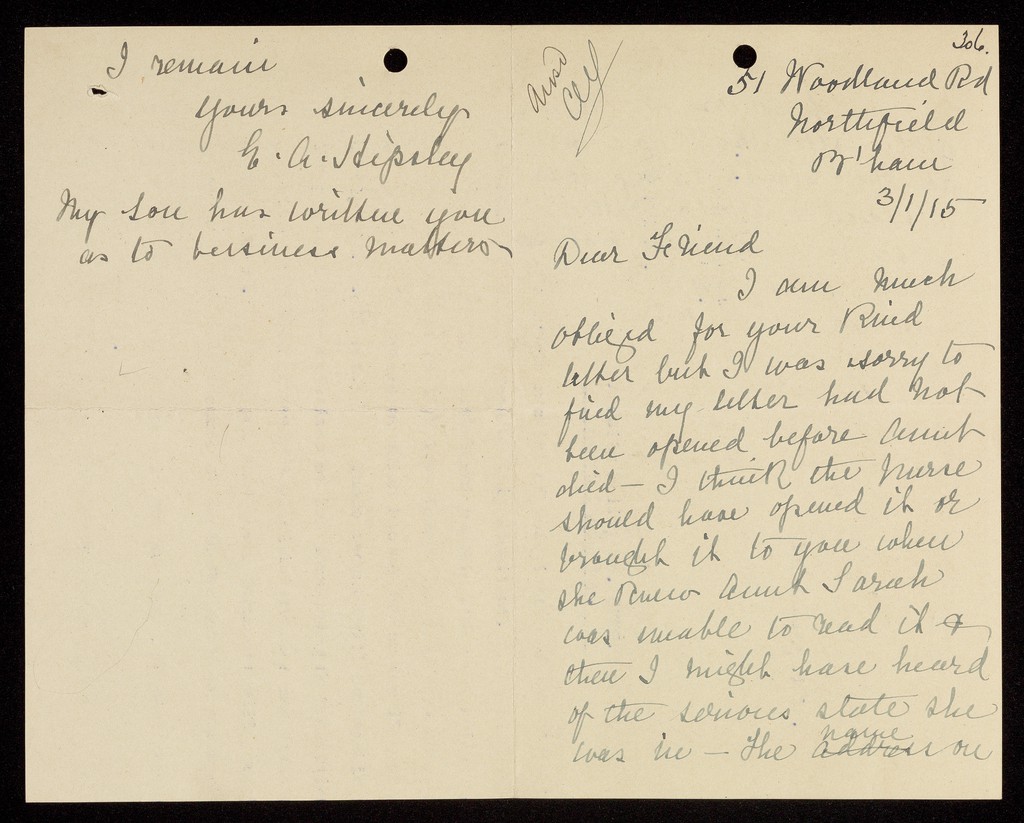 I remain
yours sincerely
E. A. Hipsley
My son has written you
as to business matters
306.
Ansd
51 Woodland Rd
Northfield
B'ham
3/1/15
Dear Friend
I am much
obliged for your kind
letter but I was sorry to
find my letter had not
been opened before Aunt
died — I think the nurse
should have opened it or
brought it to you when
she knew Aunt Sarah
was unable to read it &
then I might have heard
of the serious state she
name
was in — The address on